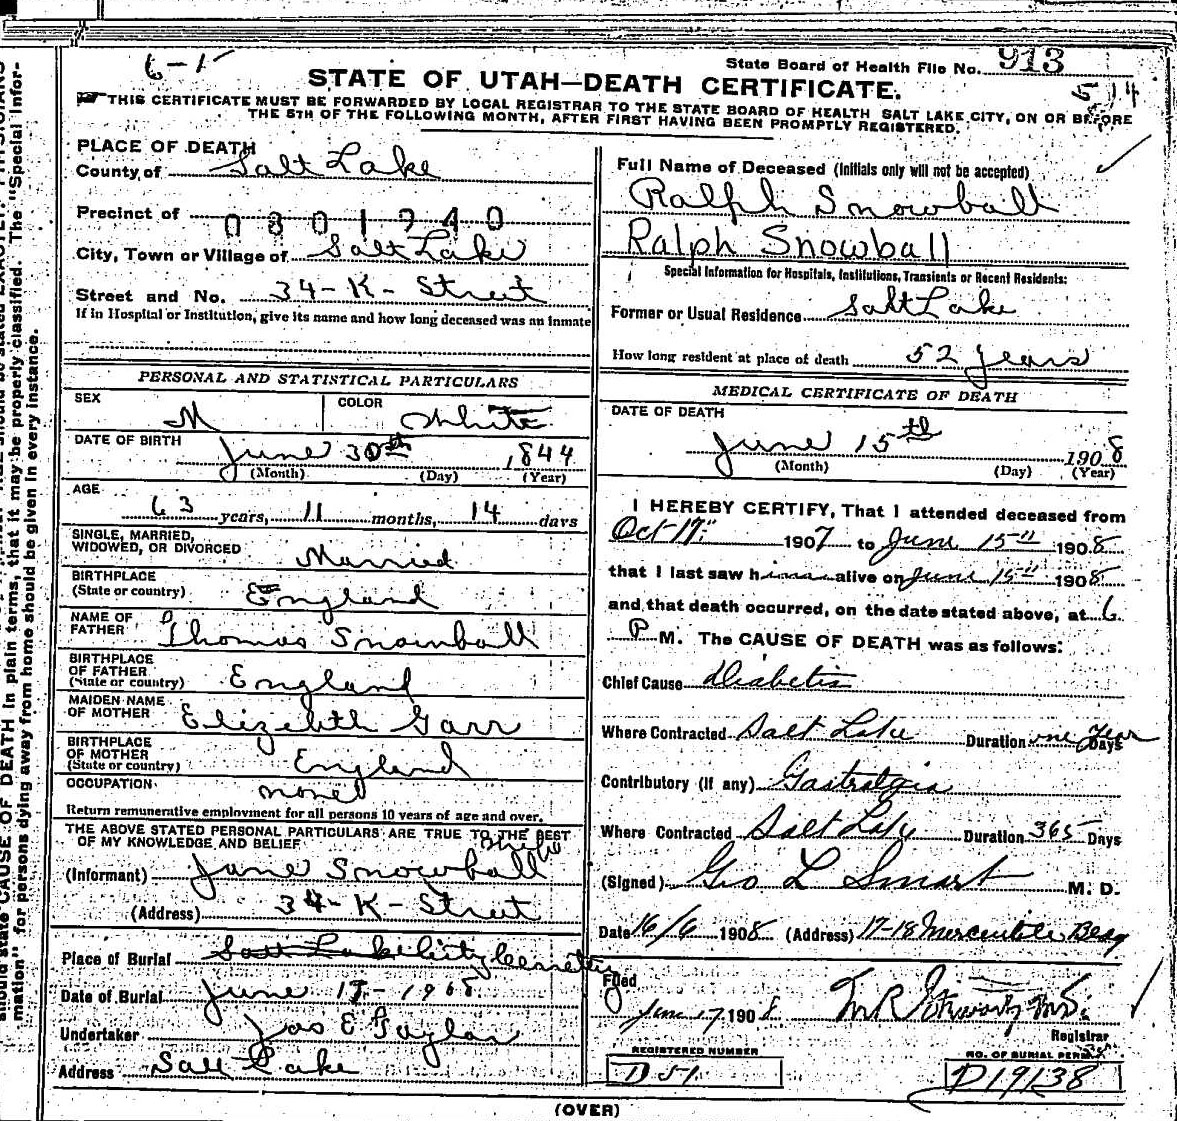 6-1
State Board of Health File No. 913
STATE OF UTAH—DEATH CERTIFICATE.
5 14
THIS CERTIFICATE MUST BE FORWARDED BY LOCAL REGISTRAR TO THE STATE BOARD OF HEALTH SALT LAKE CITY, ON OR BEFORE
THE 5TH OF THE FOLLOWING MONTH, AFTER FIRST HAVING BEEN PROMPTLY REGISTERED.
PLACE OF DEATH
County of Salt Lake
Precinct of 0801740
City, Town or Village of Salt Lake
Street and No. 34-K-Street
If in Hospital or Institution, give its name and how long deceased was an inmate
PERSONAL AND STATISTICAL PARTICULARS
SEX M COLOR White
DATE OF BIRTH June 30th 1844
(Month) (Day) (Year)
AGE 63 years, 11 months, 14 days
SINGLE, MARRIED,
WIDOWED, OR DIVORCED Married
BIRTHPLACE
(State or country) England
NAME OF
FATHER Thomas Snowball
BIRTHPLACE
OF FATHER
(State or country) England
MAIDEN NAME
OF MOTHER Elizebith Garr
BIRTHPLACE
OF MOTHER
(State or country) England
OCCUPATION none
Return remunerative employment for all persons 10 years of age and over.
THE ABOVE STATED PERSONAL PARTICULARS ARE TRUE TO THE BEST
OF MY KNOWLEDGE AND BELIEF
(Informant) Jane Snowball
(Address) 34-K-Street
Place of Burial Salt Lake City Cemetery
Date of Burial June 17-1908
Undertaker Jas E Taylor
Address Salt Lake
Full Name of Deceased (Initials only will not be accepted)
Ralph Snowball
Ralph Snowball
Special Information for Hospitals, Institutions, Transients or Recent Residents:
Former or Usual Residence Salt Lake
How long resident at place of death 52 years
MEDICAL CERTIFICATE OF DEATH
DATE OF DEATH
June 15th 1908
(Month) (Day) (Year)
I HEREBY CERTIFY, That I attended deceased from
Oct 17" 1907 to June 15" 1908
that I last saw him alive on June 15" 1908
and that death occurred, on the date stated above, at 6
P M. The CAUSE OF DEATH was as follows:
Chief Cause Diabetis
Where Contracted Salt Lake Duration one year Days
Contributory (If any) Gastralgia
Where Contracted Salt Lake Duration 365 Days
(Signed) Geo L Smart M. D.
Date 16/6 1908 (Address) 17-18 Mercantile Bldg
Filed
June 17 1908
Registrar
REGISTERED NUMBER
D 51
NO. OF BURIAL PERMIT
D19138
(OVER)